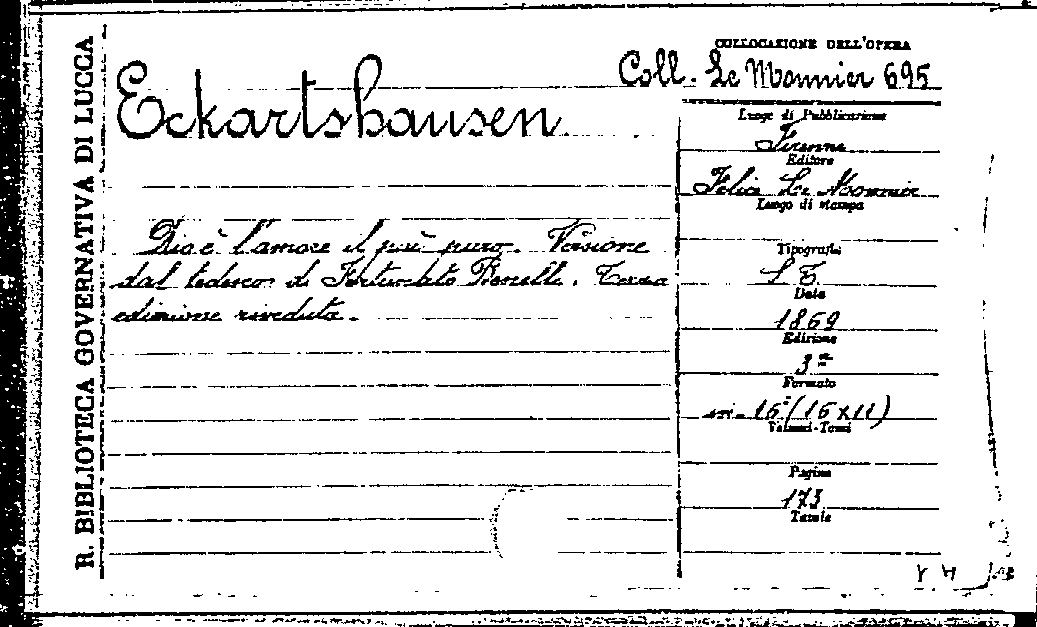 R. BIBLIOTECA GOVERNATIVA DI LUCCA
COLLOCAZIONE DELL'OPERA
Coll. Le Monnier 695
Eckartshausen
Dio è l'amore il più puro. Versione
dal tedesco di Fortunato Benelli. Terza
edizione riveduta.
Luogo di Pubblicazione
Firenze
Editore
Felice Le Monnier
Luogo di stampa
Tipografia
Data
1869
Edizione
3ª
Formato
in-16° (16x11)
Volumi-Tomi
Pagine
173
Tavole